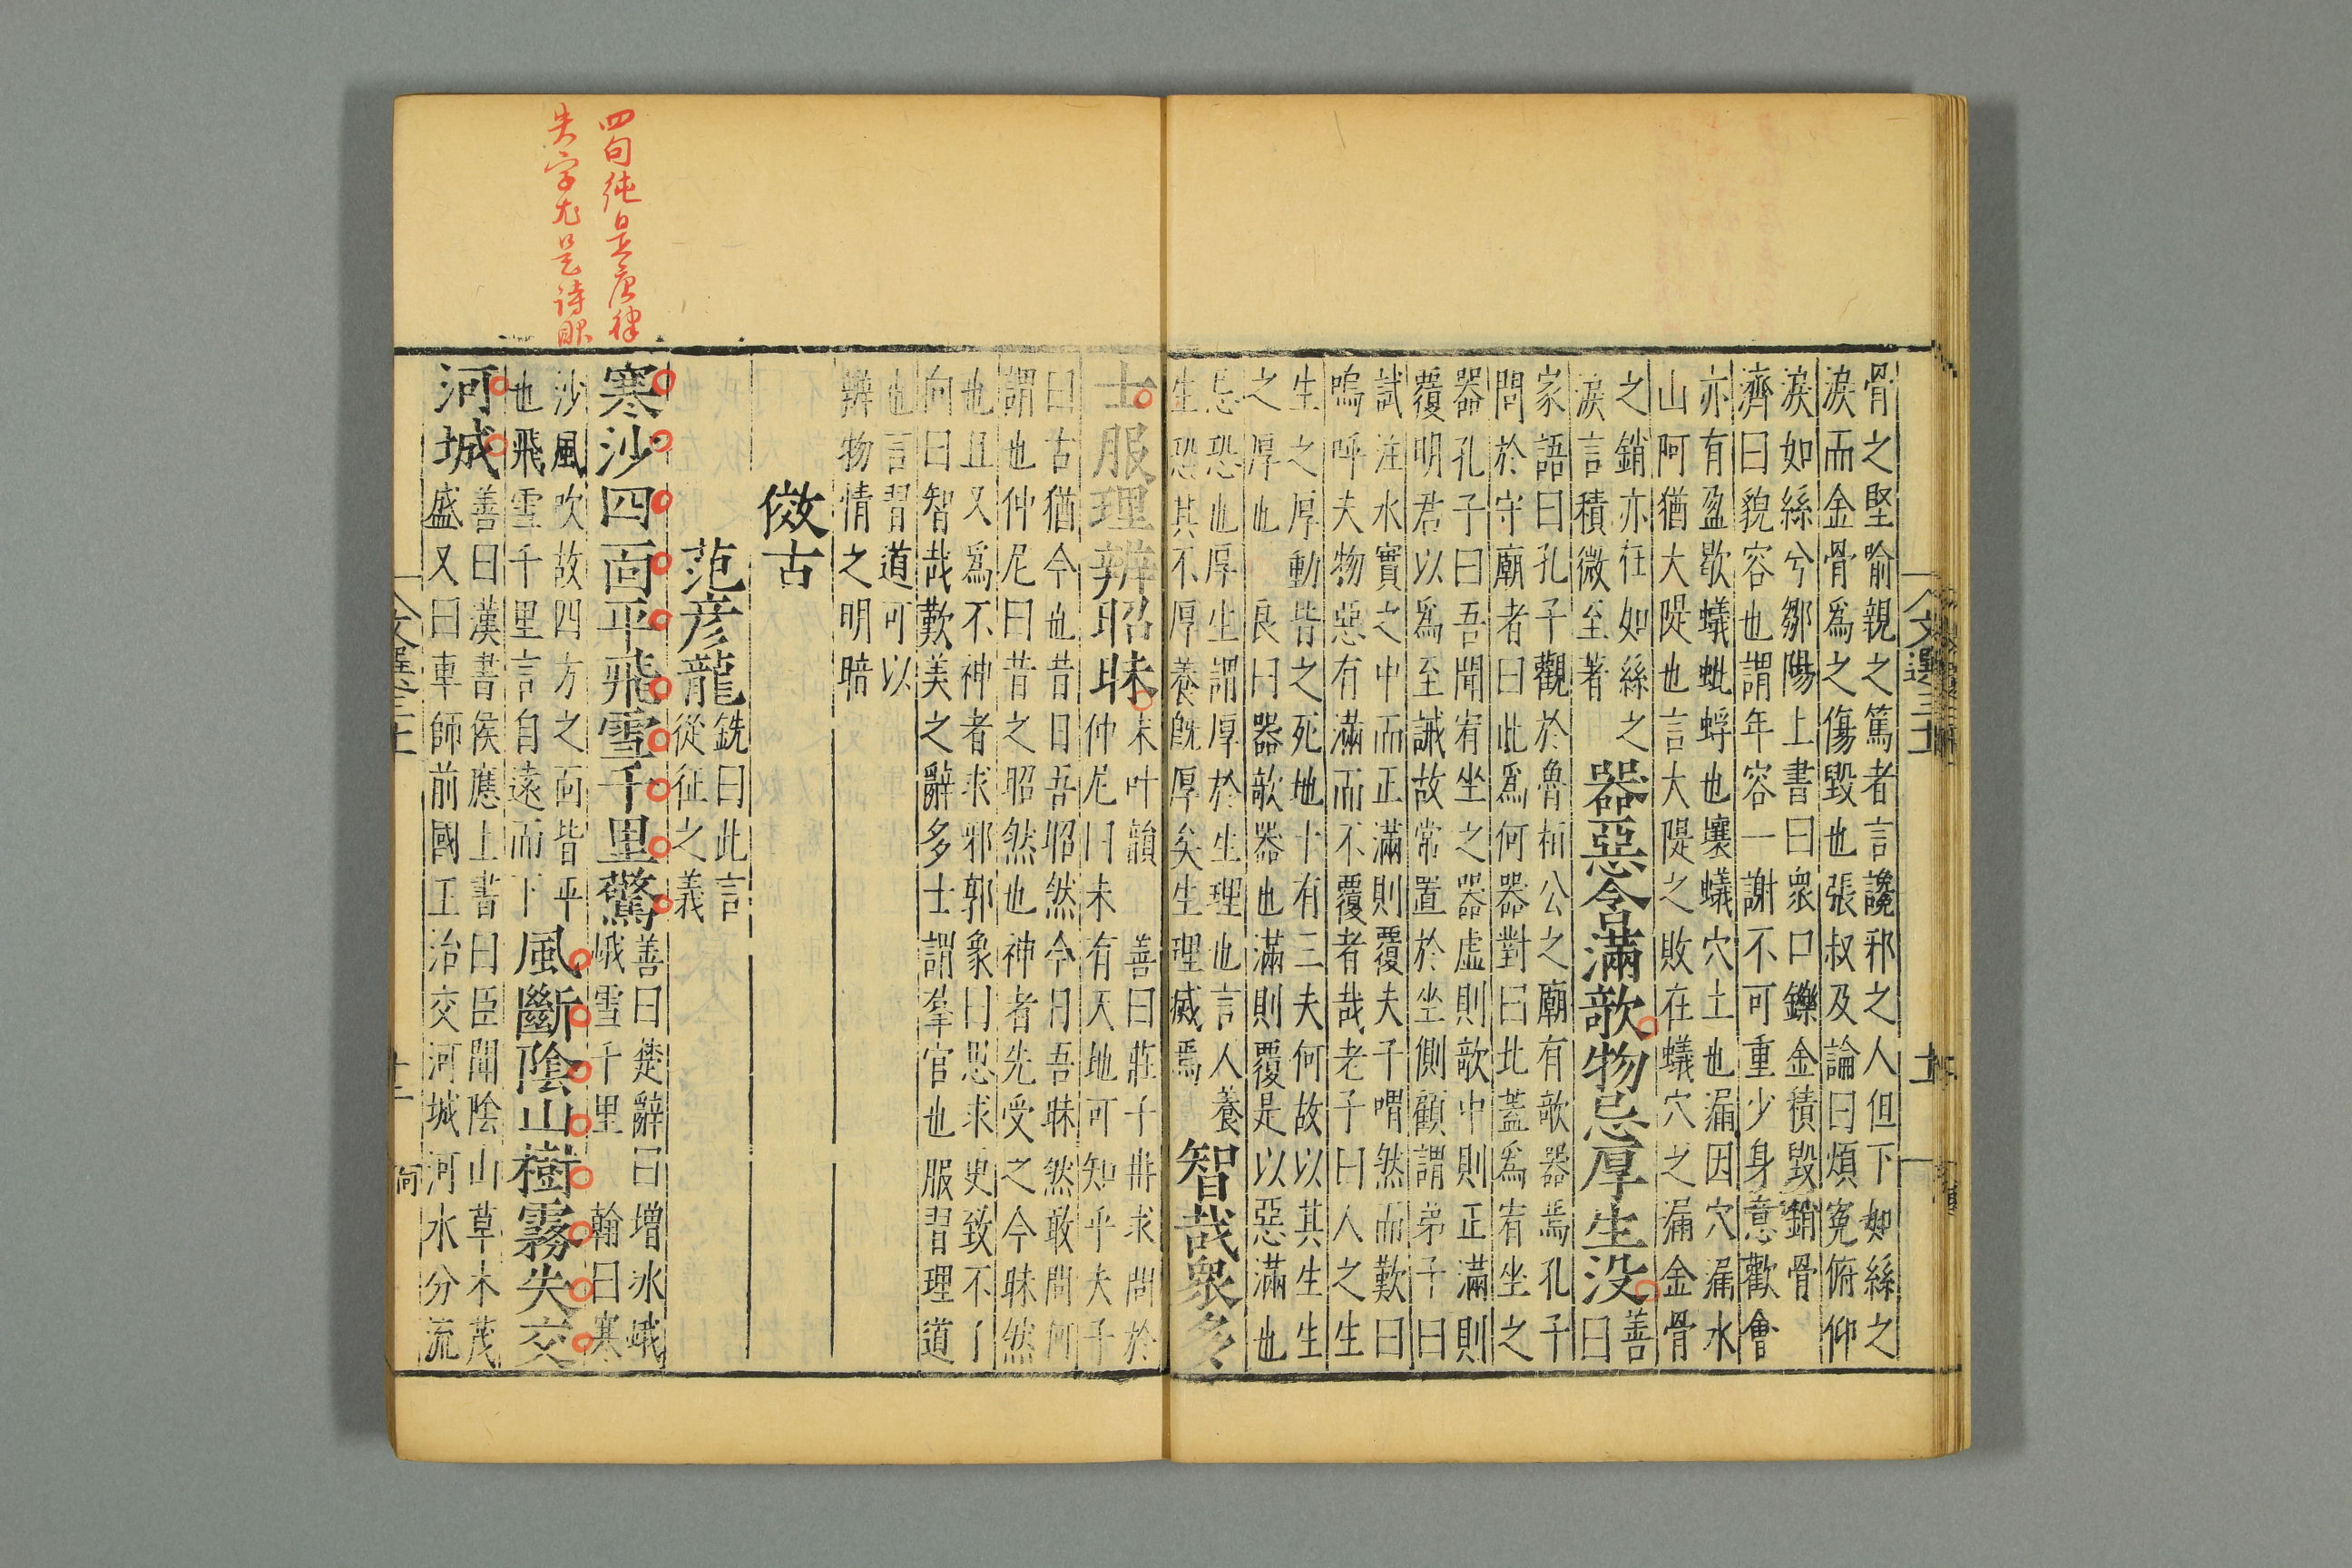 骨之堅喻親之篤者言讒邪之人但下如絲之
淚而金骨爲之傷毀也張叔及論曰煩冤俯仰
淚如絲兮鄒陽上書曰衆口鑠金積毀銷骨
濟曰貌容也謂年容一謝不可重少身意歡會
亦有盈歇蟻蚍蜉也壤蟻穴土也漏因穴漏水
山阿猶大隄也言大隄之敗在蟻穴之漏金骨
之銷亦在如絲之
淚言積微至著
器惡含滿欹物忌厚生没
善
曰
家語曰孔子觀於魯桓公之廟有欹器焉孔子
問於守廟者曰此爲何器對曰此蓋爲宥坐之
器孔子曰吾聞宥坐之器虛則欹中則正滿則
覆明君以爲至誡故常置於坐側顧謂弟子曰
試注水實之中而正滿則覆夫子喟然而歎曰
嗚呼夫物惡有滿而不覆者哉老子曰人之生
生之厚動皆之死地十有三夫何故以其生生
之厚也 良曰器欹器也滿則覆是以惡滿也
忌恐也厚生謂厚於生生理也言人養
生恐其不厚養旣厚矣生理滅焉
智哉衆多
士服理辨昭昧
未叶韻 善曰莊子冉求問於
仲尼曰未有天地可知乎夫子
曰古猶今也昔日吾昭然今日吾昧然敢問何
謂也仲尼曰昔之昭然也神者先受之今昧然
也且又爲不神者求邪郭象曰思求更致不了
向曰智哉歎美之辭多士謂羣官也服習理道
也言習道可以
辨物情之明暗
傚古
范彦龍
銑曰此言
從征之義
寒沙四面平飛雪千里驚
善曰楚辭曰增冰峨
峨雪千里 翰曰寒
沙風吹故四方之面皆平
也飛雪千里言自遠而下
風斷陰山樹霧失交
河城
善曰漢書侯應上書曰臣聞陰山草木茂
盛又曰車師前國王治交河城河水分流
四句純是唐律
失字尤是詩眼